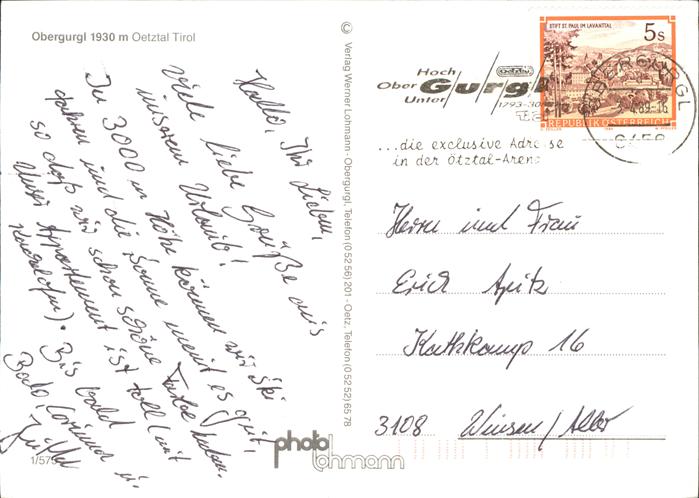 Obergurgl 1930 m Oetztal Tirol
Hallo, Ihr Lieben,
viele liebe Grüße aus
unserem Urlaub!
In 3000 m Höhe können wir Ski
fahren und die Sonne meint es gut,
so daß wir schon schöne Farbe haben.
Unser Appartement ist toll (mit
Kachelofen). Bis bald
Bodo, Corinna u.
1/575
© Verlag Werner Lohmann - Obergurgl, Telefon (0 52 56) 201 - Oetz, Telefon (0 52 52) 65 78
photo
lohmann
Hoch
Ober Gurgl
Unter
1793-30
...die exclusive Adresse
in der Ötztal-Arena
STIFT ST. PAUL IM LAVANTTAL
5s
REPUBLIK ÖSTERREICH
OBERGURGL
6456
Herrn und Frau
Erich Apitz
Kathkamp 16
3108 Winsen/Aller